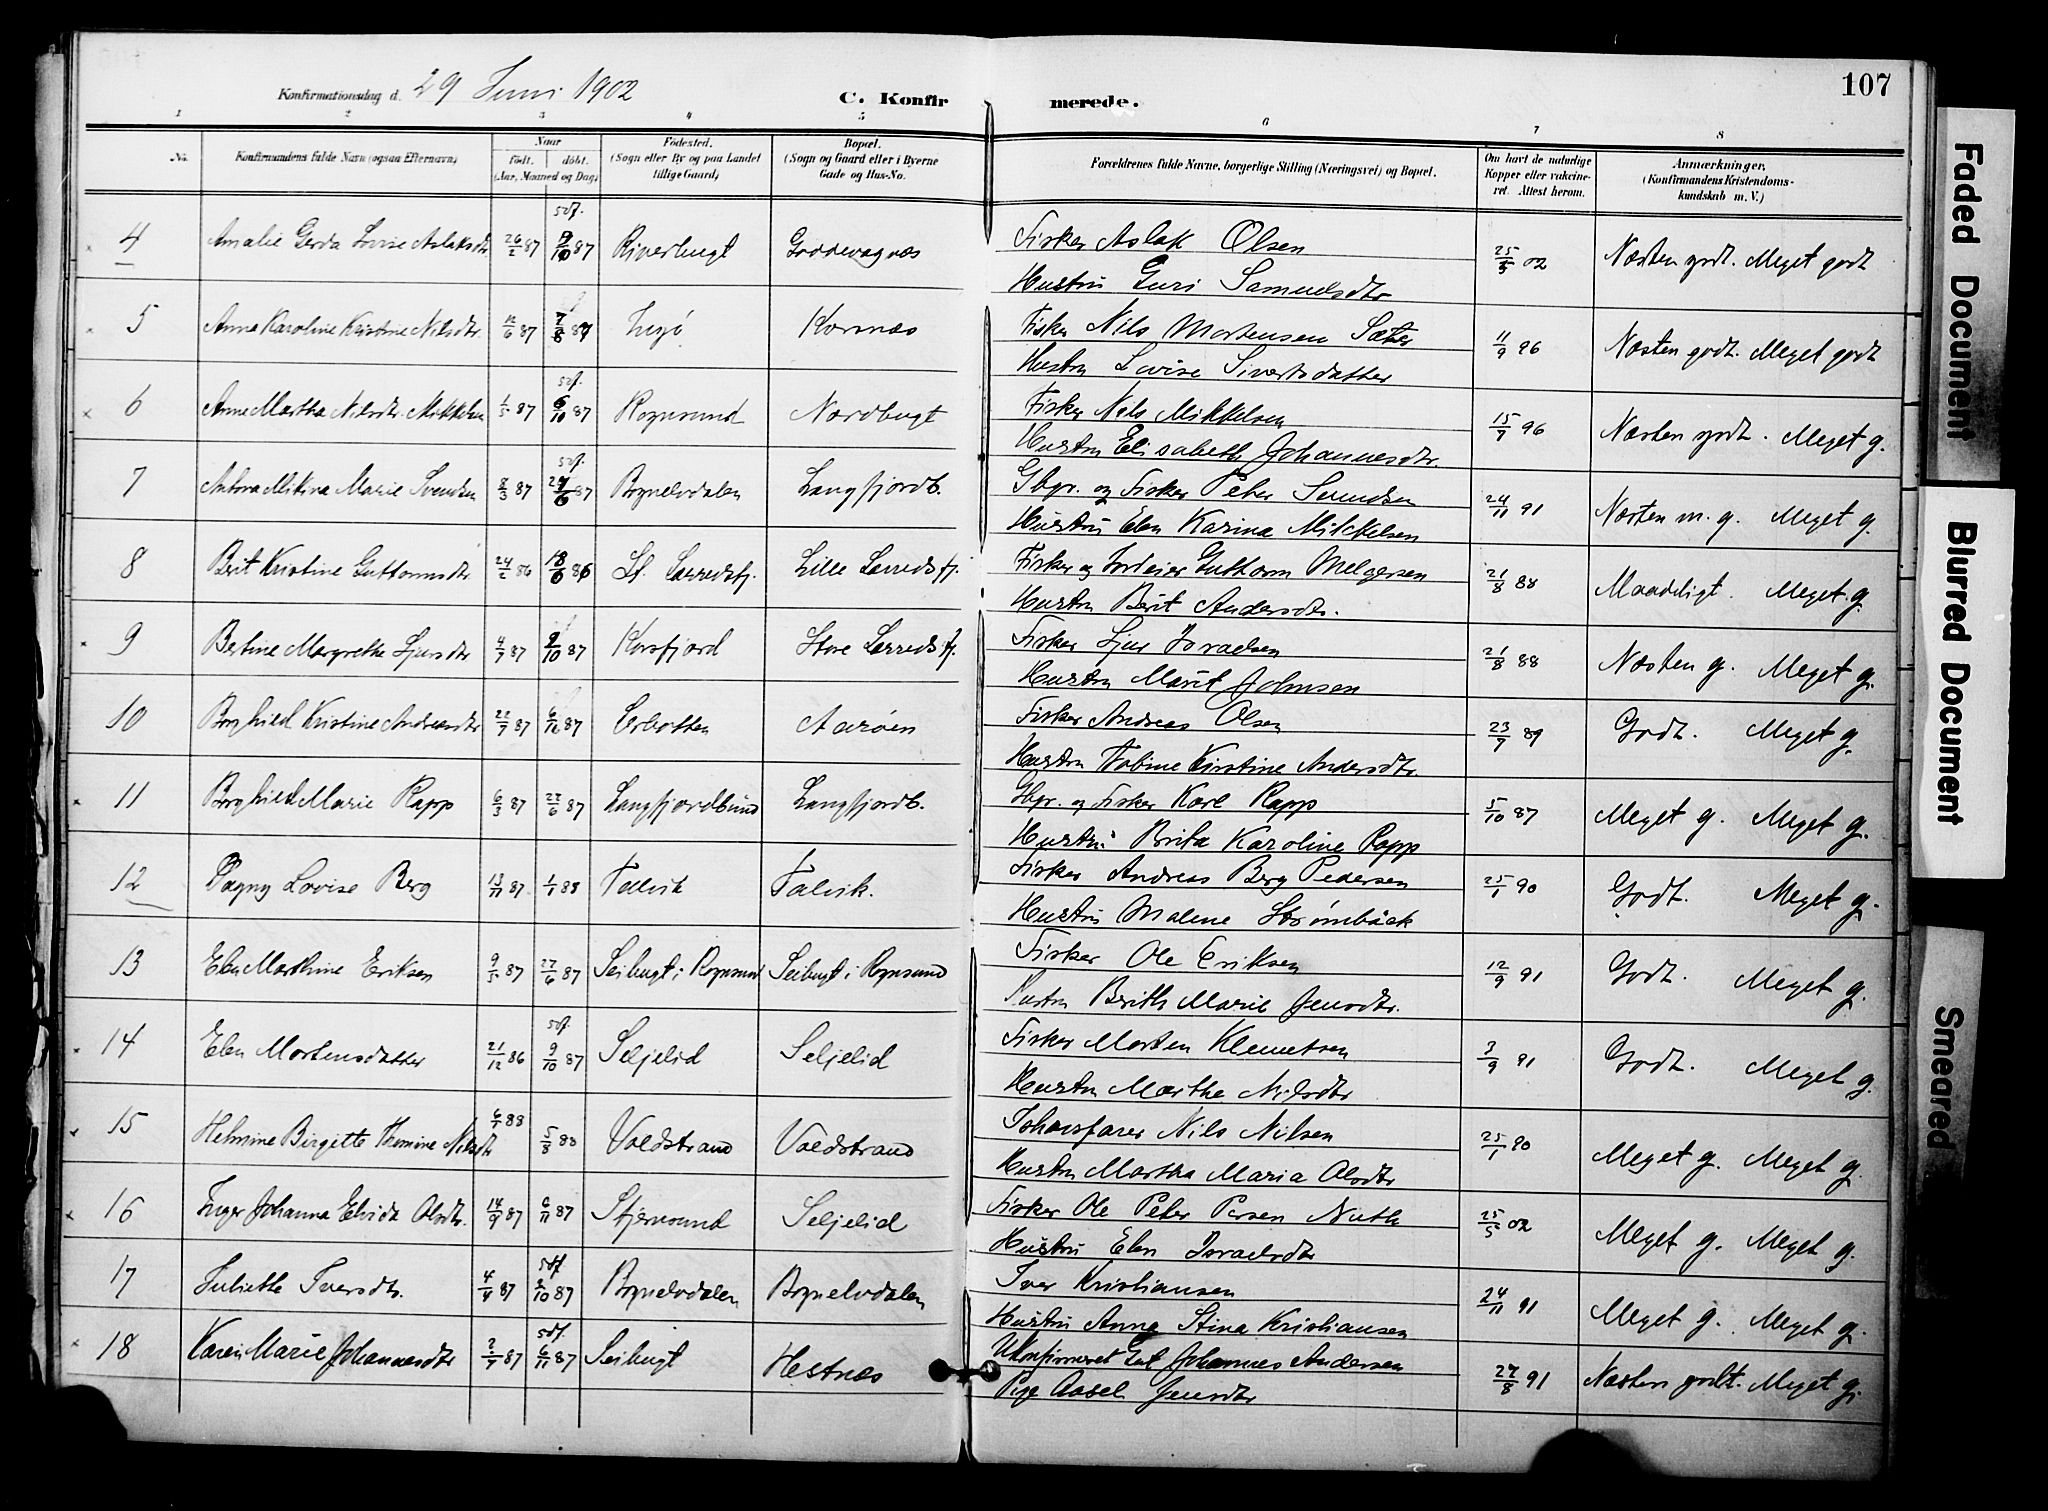 Konfirmationsdag d. 29 Juni 1902 C. Konfirmerede. 107
1 2 3 4 5 6 7 8
No. Konfirmandens fulde Navn (ogsaa Efternavn) Naar Født. døbt. (Aar, Maaned og Dag) Fødested. (Sogn eller By og paa Landet tillige Gaard) Bopæl. (Sogn og Gaard eller i Byerne Gade og Hus-No. Forældrenes fulde Navne, borgerlige Stilling (Næringsvei) og Bopæl. Om havt de naturlige Kopper eller vaccineret. Attest herom. Anmærkninger. (Konfirmandens Kristendomskundskab m. V.)
4 Amalie Gerda Lovise Aslaksdtr 26/2 87 87 Riverbugt Goddevagnæs Fisker Aslak Olsen 25/5 02 Næsten godt. Meget godt
Hustru Guri Samuelsdtr
5 Anna Karoline Kristine Nilsdtr. 12/6 87 7/8 87 Ingø Kornæs Fisker Nils Mortensen Sæter 11/9 96 Næsten godt. Meget godt
Hustru Lovise Sivertsdatter
6 Anne Martha Nilsdtr. Mikkelsen 1/5 87 6/10 87 Rognsund Nordbugt Fisker Nils Mikkelsen 15/7 96 Næsten godt. Meget g.
Hustru Elisabeth Johannesdtr.
7 Antora Mikina Marie Svendsen 8/3 87 87 Bognelvdalen Langfjordb. Gbgr. og Fisker Peter Svendsen 24/11 91 Næsten m. g. Meget g.
Hustru Elen Karina Mikkelsen
8 Berit Kristine Guttormsdtr 24/2 86 86 Lt. Lerredsfj. Lille Lerredsfj. Fisker og Forleier Guttorm Melgersen 21/8 88 Maadeligt. Meget g.
Hustru Berit Andersdtr.
9 Bertine Margrethe Ljursdtr 4/7 87 9/10 87 Korsfjord Store Lerredsfj. Fisker Ljur Israelsen 21/8 88 Næsten g. Meget g.
Hustru Marit Johnsen
10 Borghild Kristine Andreasdtr 22/7 87 6/11 87 Lerbotten Aarøen Fisker Andreas Olsen 23/7 89 Godt. Meget g.
Hustru Tobine Kirstine Andersdtr.
11 Borghild Marie Rapp 6/3 87 27/6 87 Langfjordbund Langfjordb. Gbgr. og Fisker Karl Rapp 5/10 87 Meget g. Meget g.
Hustru Brita Karoline Rapp
12 Dagny Lovise Berg 13/11 87 1/1 88 Talvik Talvik. Fisker Andreas Berg Pedersen 25/1 90 Godt. Meget g.
Hustru Malene Strømbäck
13 Elen Marthine Eriksen 9/5 87 27/6 87 Seibugt i Rognsund Seibugt i Rognsund Fisker Ole Eriksen 12/9 91 Godt. Meget g.
Hustru Berith Marie Jensdtr.
14 Elen Mortensdatter 21/12 86 9/10 87 Seljelid Seljelid Fisker Morten Klemetsen 3/9 91 Godt. Meget g.
Hustru Marthe Nilsdtr
15 Helmine Birgitte Thomine Nilsdtr 88 5/8 88 Voldstrand Voldstrand Nils Nilsen 25/1 90 Meget g. Meget g.
Hustru Martha Maria Olsdtr
16 Inger Johanna Elvida Olsdtr. 14/9 87 6/11 87 Stjernsund Seljelid Fisker Ole Peter Persen Nuth 25/5 02 Meget g. Meget g.
Hustru Elen Israelsdtr
17 Juliette Iversdtr. 4/4 87 87 Bognelvdalen Bognelvdalen Iver Kristiansen 24/11 91 Meget g. Meget g.
Hustru Anna Stina Kristiansen
18 Karen Marie Johannesdtr 2/7 87 6/11 87 Seibugt Hestnæs Ukonfirmeret Gut Johannes Andersen 27/8 91 Næsten godt. Meget g.
Pige Aasel Jensdtr
Faded Document
Blurred Document
Smeared